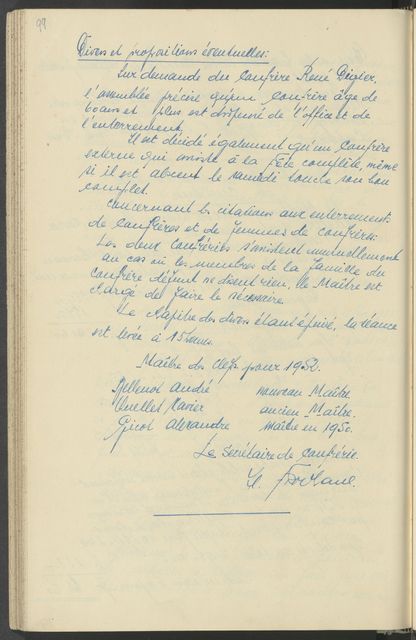 99
Divers et propositions éventuelles:
Sur demande du Confrère René Digier,
l'assemblée précise qu'un confrère âgé de
60 ans et plus est dispensé de l'office et de
l'enterrement.
Il est décidé également qu'un Confrère
externe qui assiste à la Fête complète, même
si il est absent le samedi touche son bon
complet.
Concernant les citations aux enterrements
de Confrères et de femmes de confrères:
Les deux Confréries s'assistent mutuellement
au cas où les membres de la famille du
Confrère défunt ne disent rien, le Maître est
chargé de faire le nécessaire.
Le chapitre des divers étant épuisé, la séance
est levée à 15 heures.
Maître des Clefs pour 1952.
André nouveau Maître.
Xavier ancien Maître.
Gicot Alexandre Maître en 1950.
Le Secrétaire de Confrérie